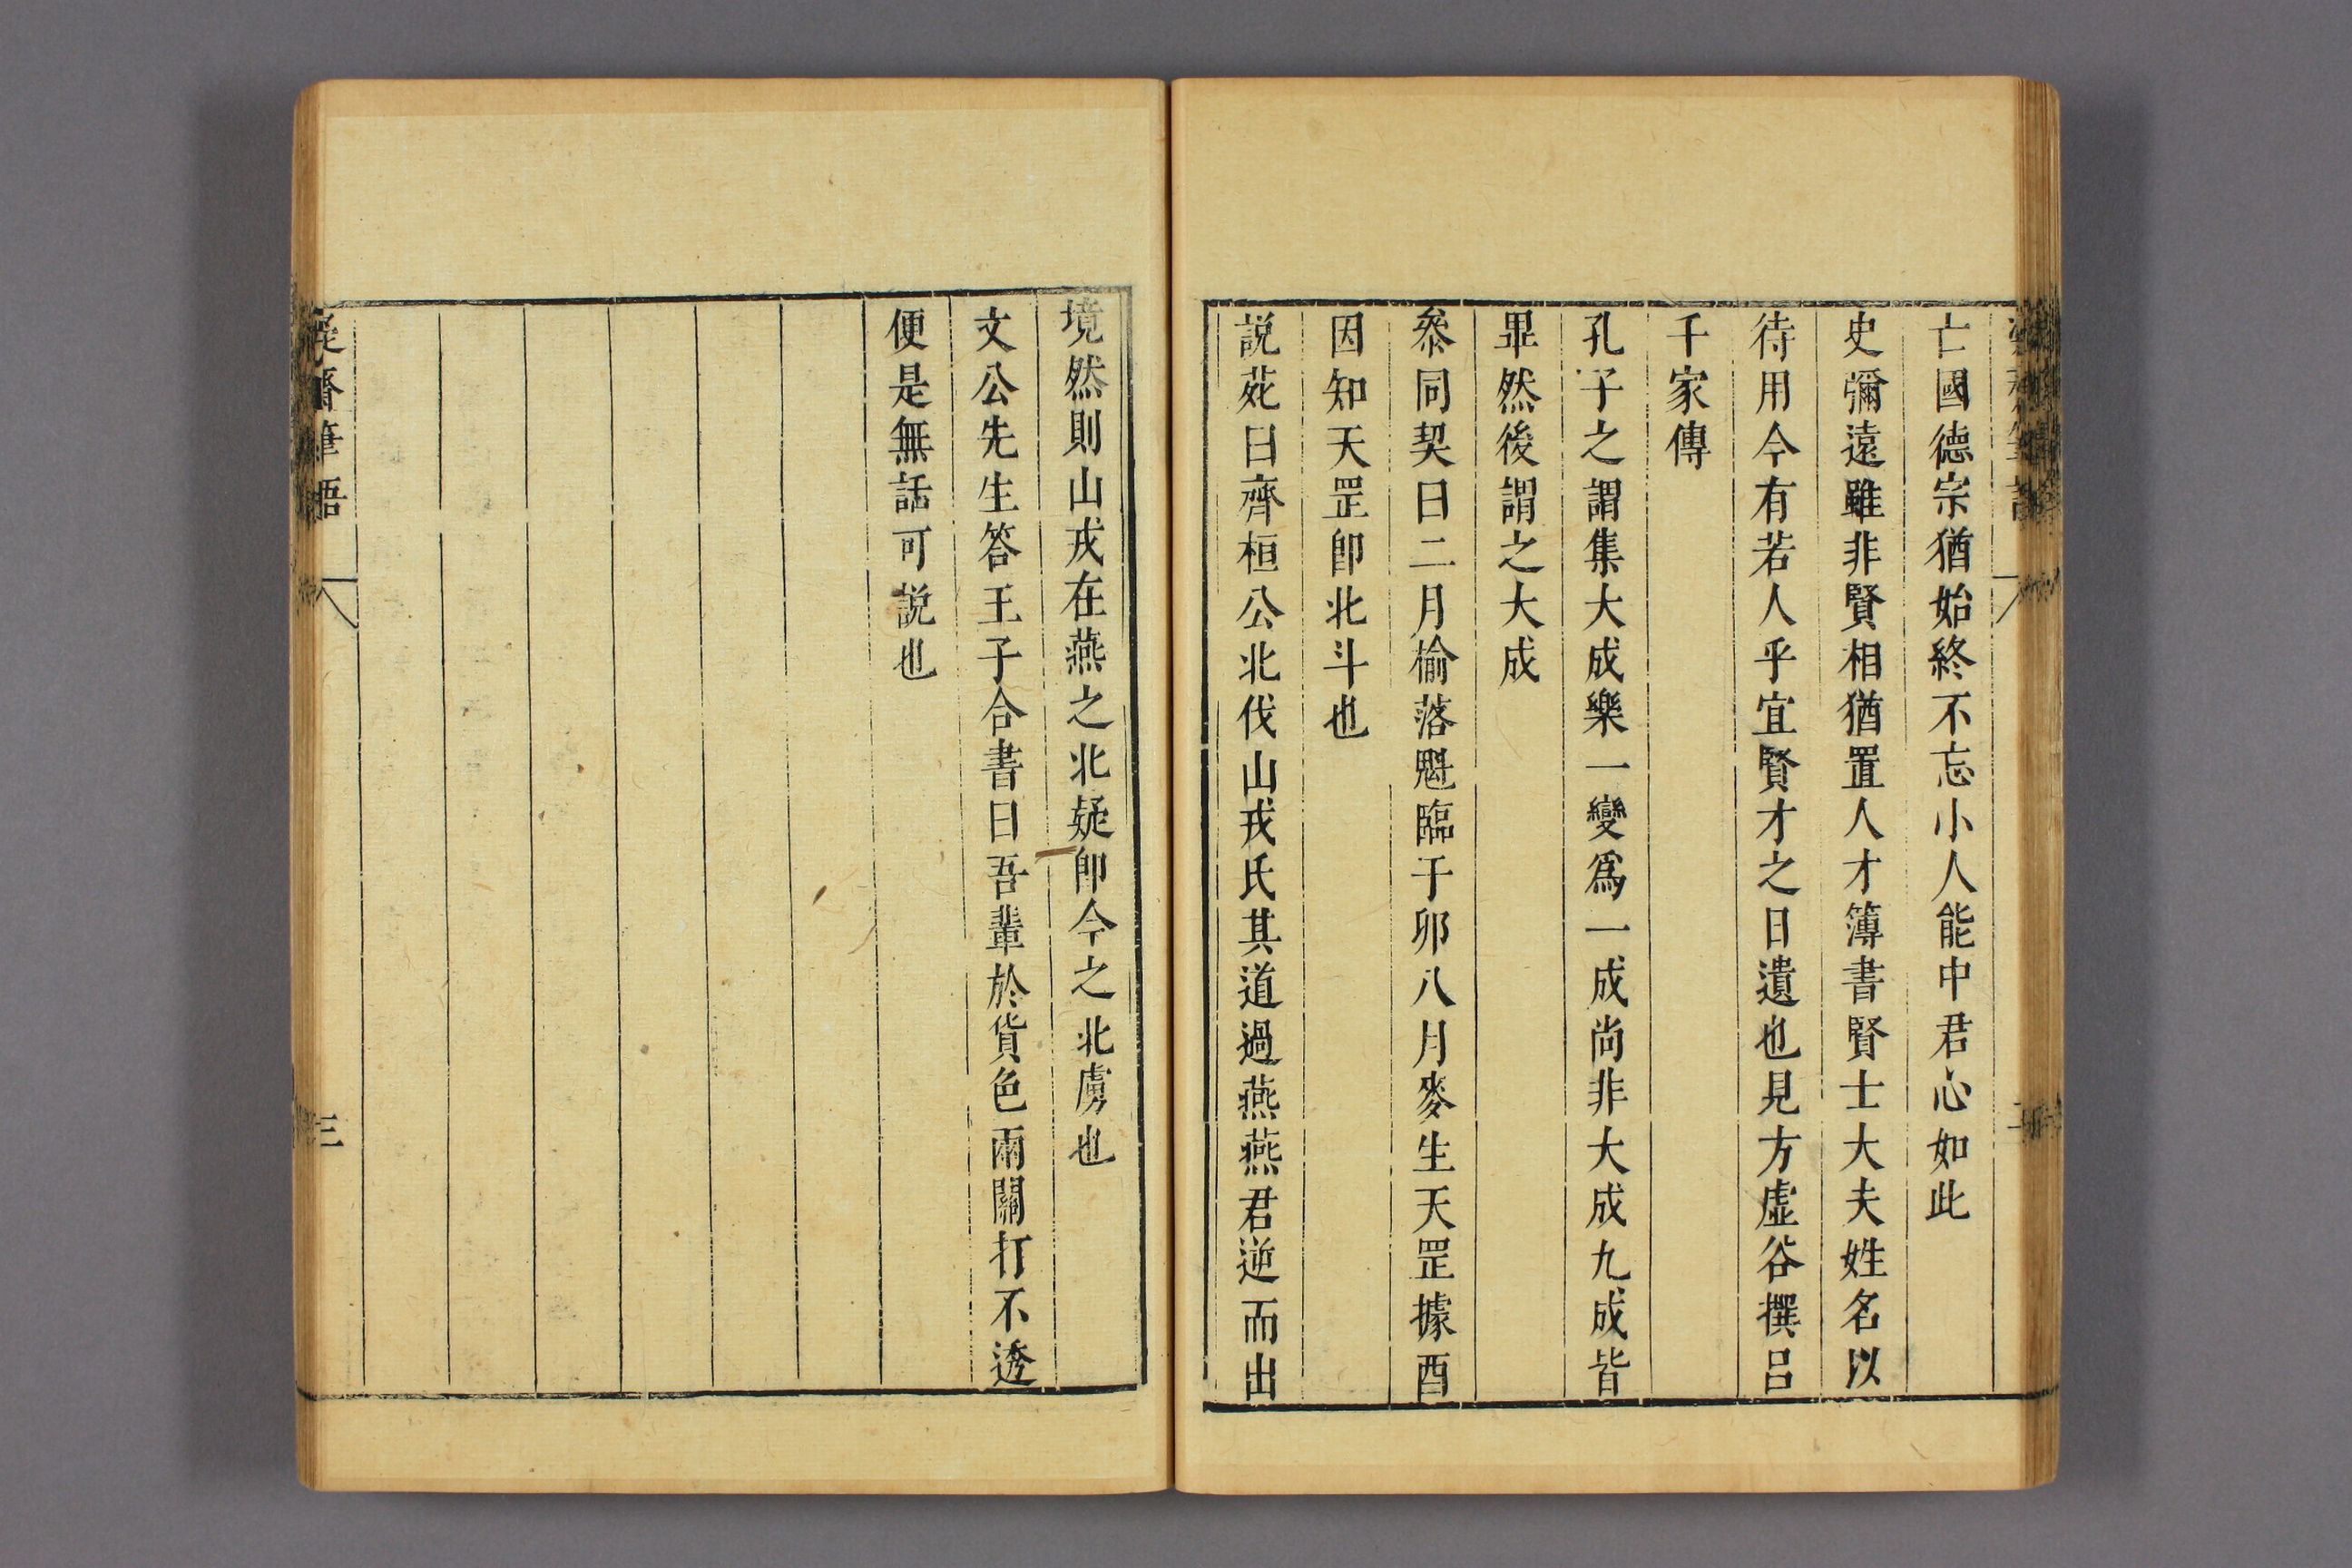 亡國德宗猶始終不忘小人能中君心如此
史彌遠雖非賢相猶置人才簿書賢士大夫姓名以
待用今有若人乎宜賢才之日遺也見方虛谷撰呂
千家傳
孔子之謂集大成樂一變爲一成尚非大成九成皆
畢然後謂之大成
叅同契曰二月榆落魁臨于卯八月麥生天罡據酉
因知天罡卽北斗也
説苑曰齊桓公北伐山戎氏其道過燕燕君逆而出
境然則山戎在燕之北疑卽今之北虜也
文公先生答王子合書曰吾輩於貨色兩關打不透
便是無話可説也
齋筆語
三